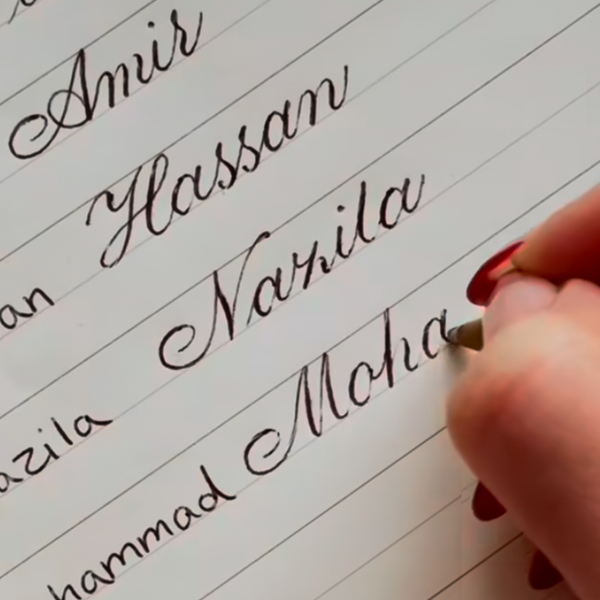 Amir
an Hassan
azila Nazila
hammad Moha